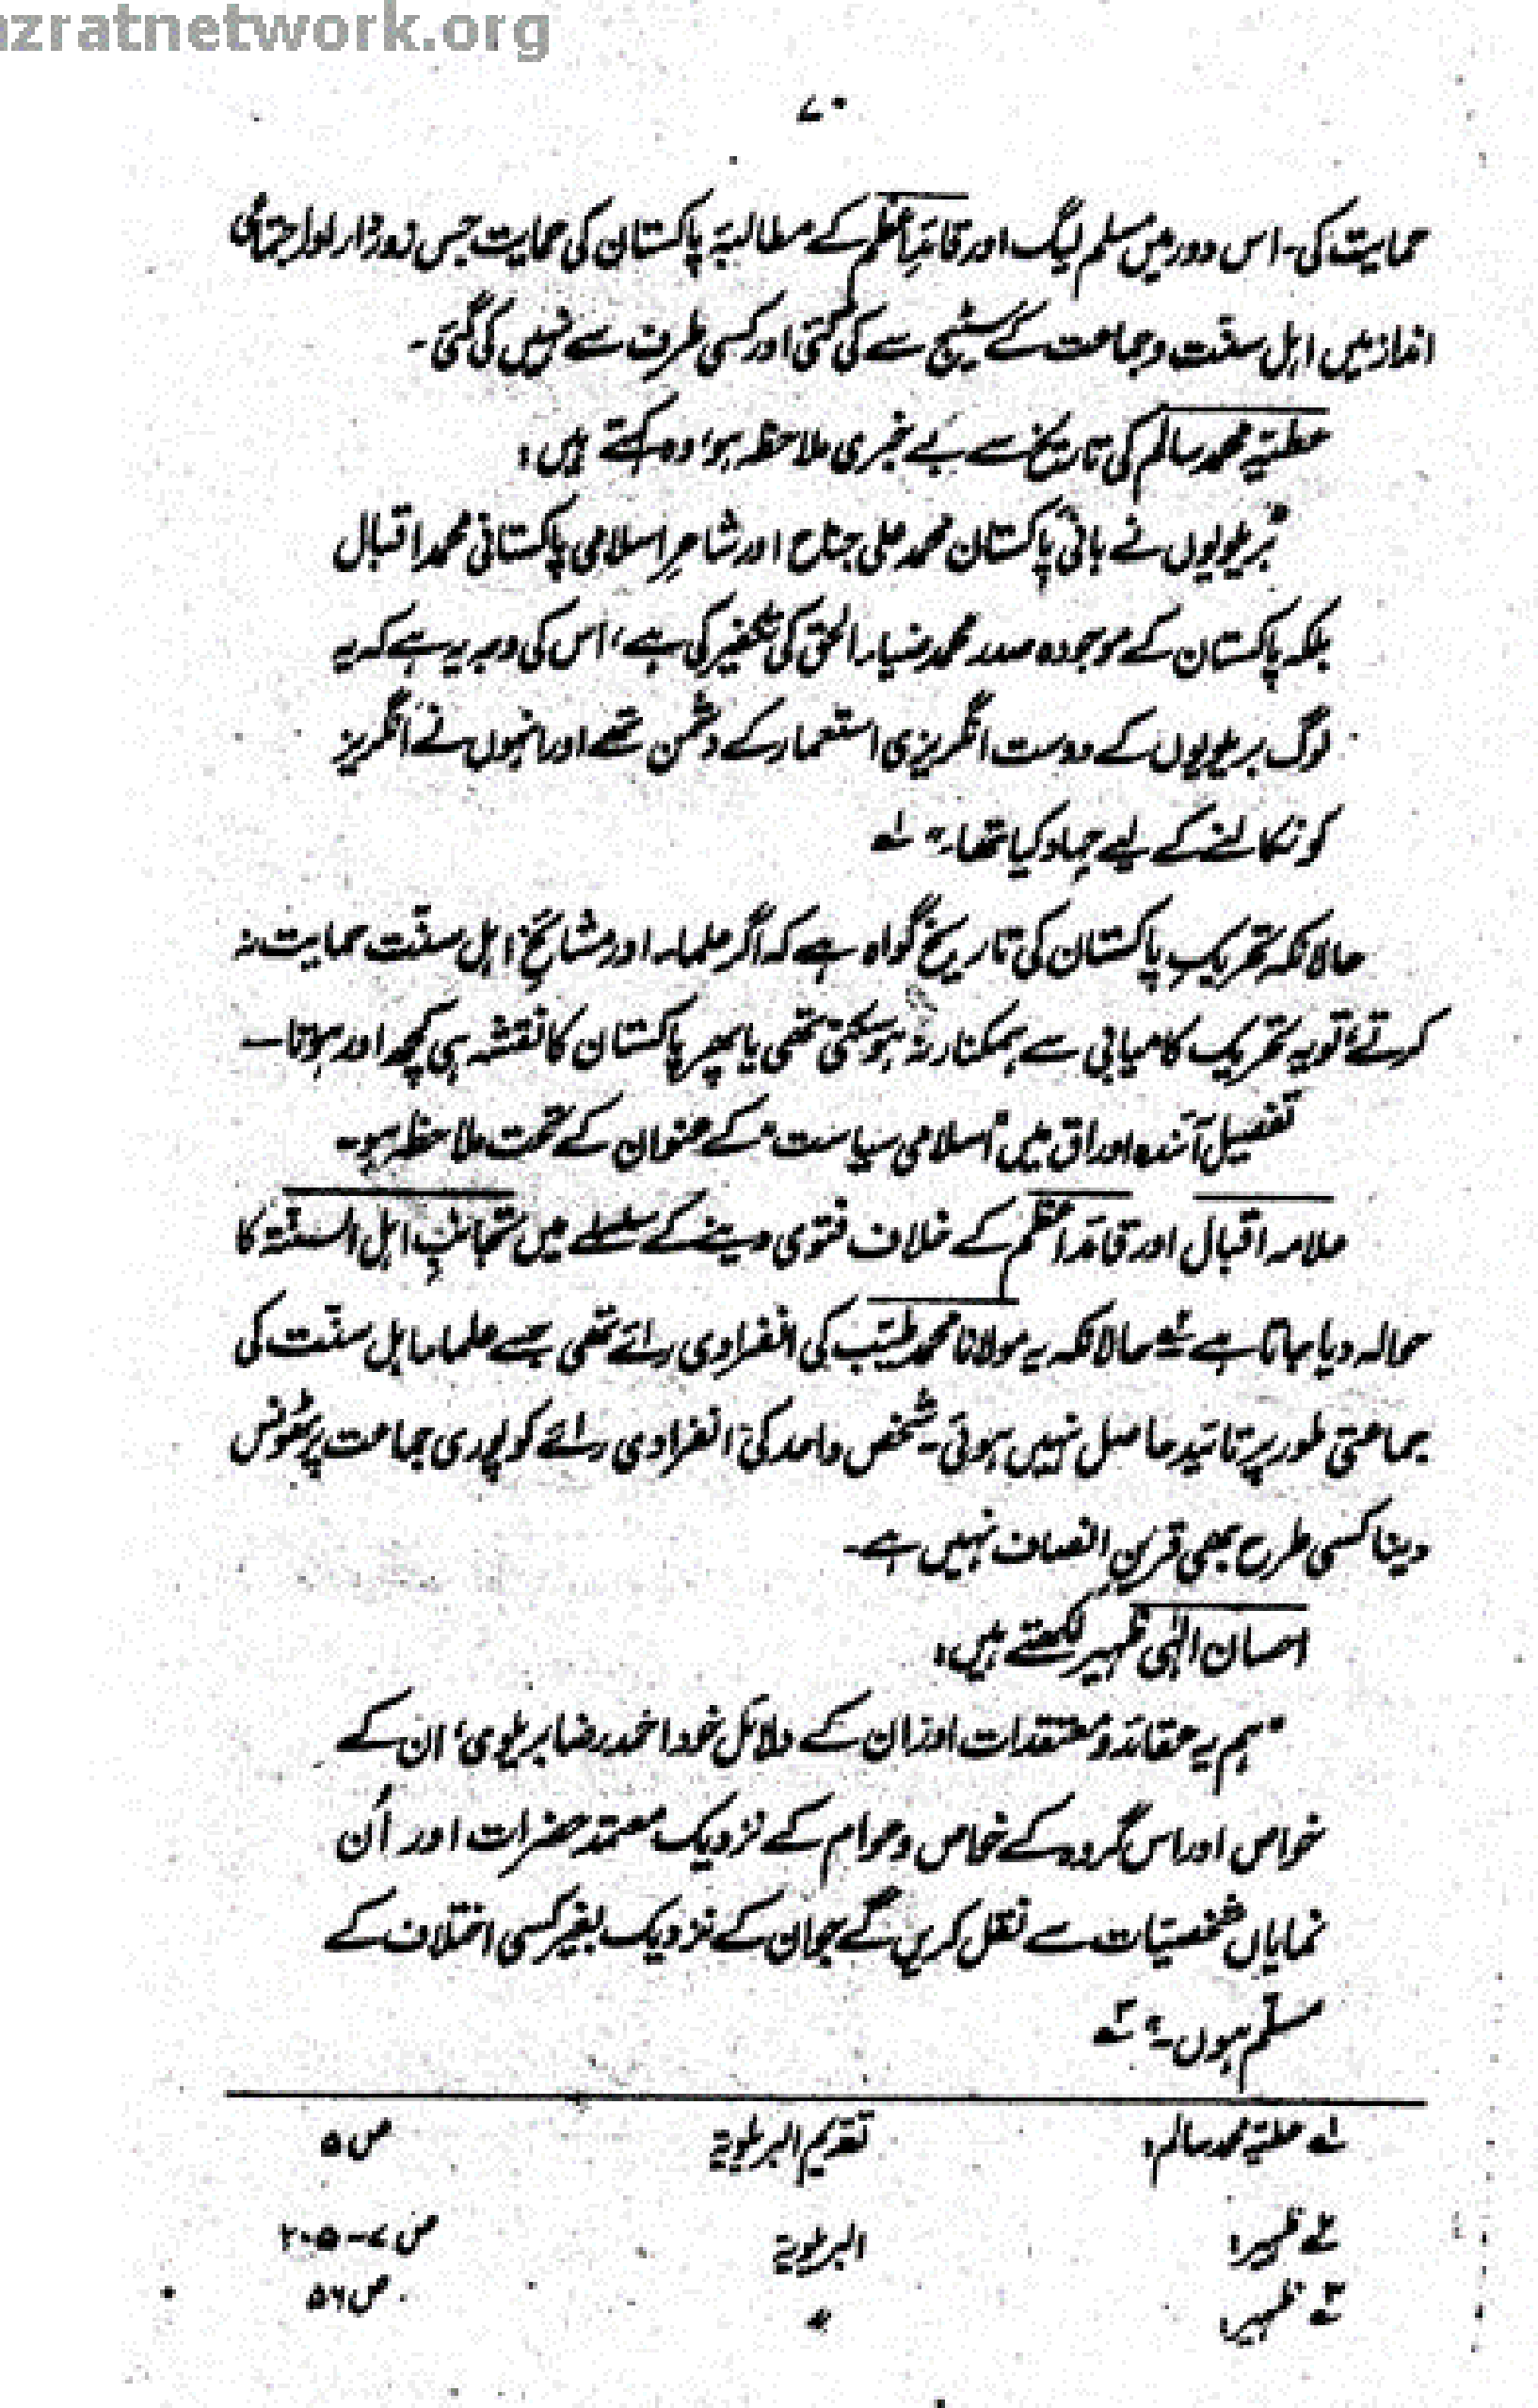 azratnetwork.org
۷۰
حمایت کی۔ اس دور میں مسلم لیگ اور قائدِ اعظم کے مطالبۂ پاکستان کی حمایت جس زوردار اور اجتماعی
انداز میں اہل سنت و جماعت کے سٹیج سے کی گئی اور کسی طرف سے نہیں کی گئی۔
عطیۃ محمد سالم کی تاریخ سے بے خبری ملاحظہ ہو، وہ کہتے ہیں:
"بریلویوں نے بانیٔ پاکستان محمد علی جناح اور شاعرِ اسلامی پاکستانی محمد اقبال
بلکہ پاکستان کے موجودہ صدر محمد ضیاء الحق کی تکفیر کی ہے، اس کی وجہ یہ ہے کہ یہ
لوگ بریلویوں کے دوست انگریزی استعمار کے دشمن تھے اور انہوں نے انگریز
کو نکالنے کے لیے جہاد کیا تھا۔" ۱؎
حالانکہ تحریکِ پاکستان کی تاریخ گواہ ہے کہ اگر علماء اور مشائخِ اہل سنّت حمایت نہ
کرتے، تو یہ تحریک کامیابی سے ہمکنار نہ ہو سکتی تھی یا پھر پاکستان کا نقشہ ہی کچھ اور ہوتا۔
تفصیل آئندہ اوراق میں "اسلامی سیاست" کے عنوان کے تحت ملاحظہ ہو۔
علامہ اقبال اور قائد اعظم کے خلاف فتوی دینے کے سلسلے میں تجانبِ اہل السنّۃ کا
حوالہ دیا جاتا ہے ۲؎ حالانکہ یہ مولانا محمد طیّب کی انفرادی رائے تھی جسے علماء اہل سنّت کی
جماعتی طور پر تائید حاصل نہیں ہوئی۔ شخص واحد کی انفرادی رائے کو پوری جماعت پر ٹھونس
دینا کسی طرح بھی قرینِ انصاف نہیں ہے۔
احسان الٰہی ظہیر لکھتے ہیں:
"ہم یہ عقائد و معتقدات اور ان کے دلائل خود احمد رضا بریلوی، ان کے
خواص اور اس گروہ کے خاص و عوام کے نزدیک معتمد حضرات اور اُن
نمایاں شخصیّات سے نقل کریں گے جو ان کے نزدیک بغیر کسی اختلاف کے
مسلّم ہوں۔" ۳؎
۱؎ عطیۃ محمد سالم: تقدیم البریلویۃ ص ۵
۲؎ ظہیر: البریلویۃ ص ۷-۲۰۵
۳؎ ظہیر: " ص ۵۶